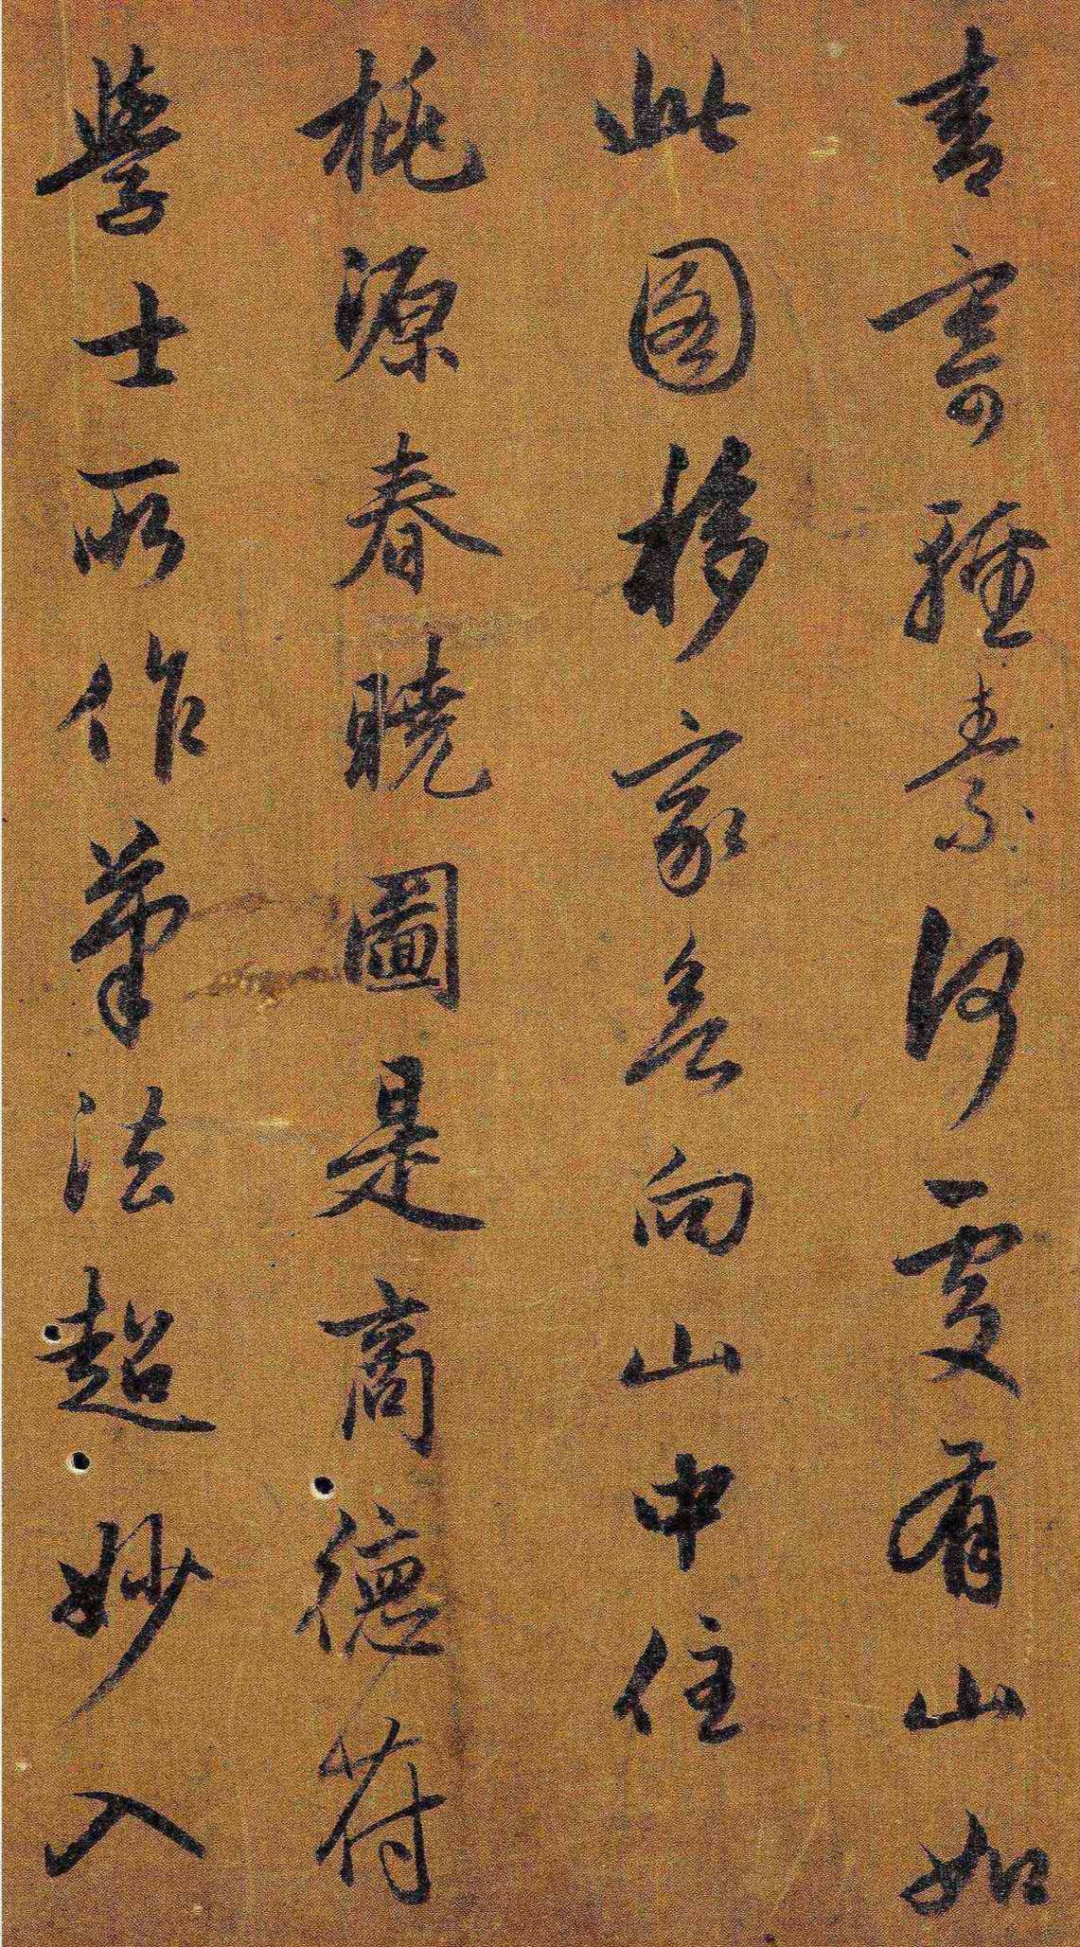 青寄輕素何處有山如
此圖移家向山中住
桃源春曉圖是商德符
學士所作筆法超妙入